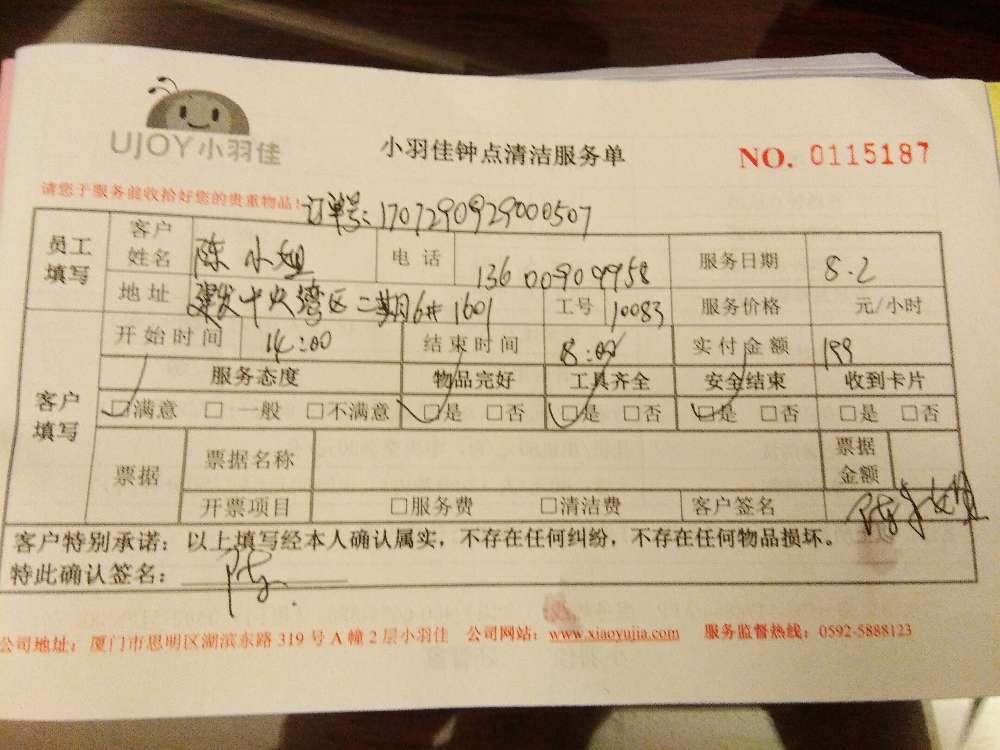 UJOY小羽佳
小羽佳钟点清洁服务单
NO. 0115187
请您于服务前收拾好您的贵重物品!
订单号:1707290929000507
员工填写 客户姓名 陈小姐 电话 13600909958 服务日期 8.2
地址 建发中央湾区二期6#1601 工号 10083 服务价格 元/小时
客户填写 开始时间 14:00 结束时间 18:00 实付金额 199
服务态度 物品完好 工具齐全 安全结束 收到卡片
☑满意 □一般 □不满意 ☑是 □否 ☑是 □否 ☑是 □否 □是 □否
票据 票据名称 票据金额
开票项目 □服务费 □清洁费 客户签名 陈小姐
客户特别承诺:以上填写经本人确认属实,不存在任何纠纷,不存在任何物品损坏。
特此确认签名:陈
公司地址:厦门市思明区湖滨东路319号A幢2层小羽佳 公司网站:www.xiaoyujia.com 服务监督热线:0592-5888123